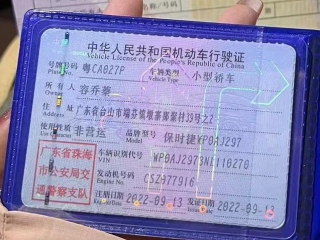 中华人民共和国机动车行驶证
Vehicle License of the People's Republic of China
号牌号码 粤CA827P 车辆类型 小型轿车
Plate No. Vehicle Type
所有人 容乔蓁
Owner
住址 广东省台山市端芬镇墩寨那泰村39号之2
Address
使用性质 非营运 品牌型号 保时捷WP0AJ297
Use Character Model
广东省珠海
市公安局交
通警察支队
车辆识别代号
VIN WP0AJ2973NL110270
发动机号码
Engine No. CSZ077916
注册日期 2022-09-13 发证日期 2022-09-13
Register Date Issue Date